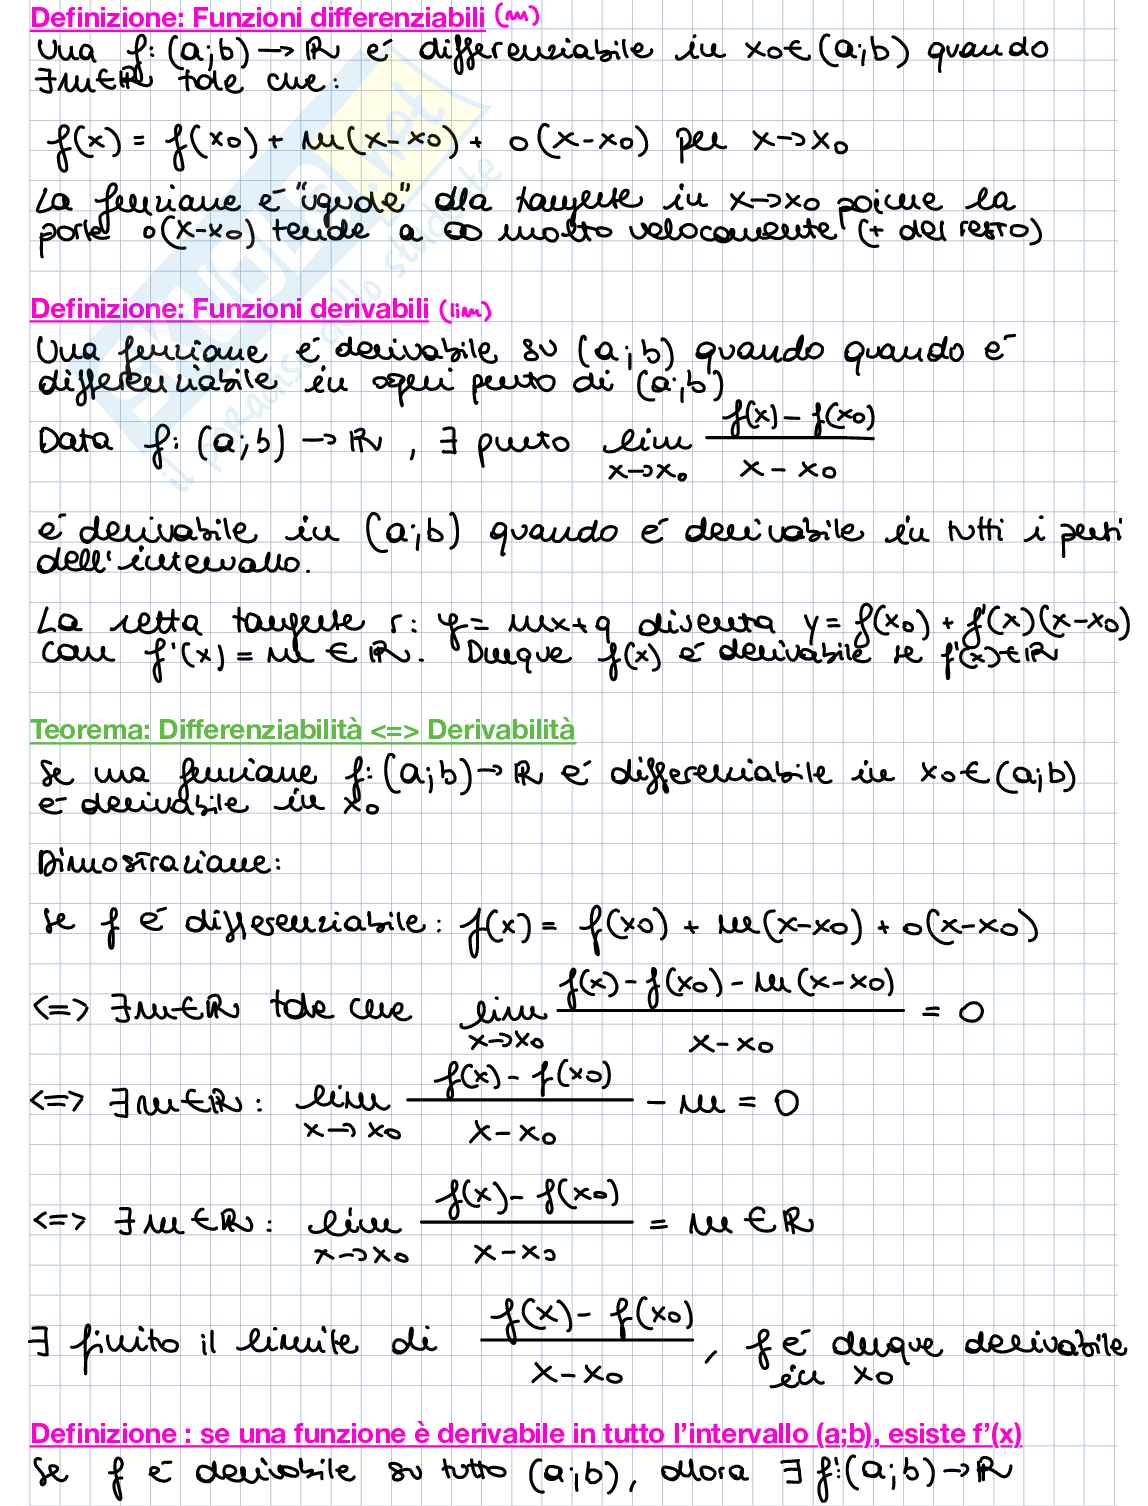 Definizione: Funzioni differenziabili (m)
Una f: (a;b) → ℝ é differenziabile in x₀ ∈ (a;b) quando
∃m∈ℝ tale che:
f(x) = f(x₀) + m(x-x₀) + o(x-x₀) per x→x₀
La funzione é "uguale" alla tangente in x→x₀ poiche la
parte o(x-x₀) tende a ∞ molto velocemente (+ del resto)
Definizione: Funzioni derivabili (lim)
Una funzione é derivabile su (a;b) quando quando é
differenziabile in ogni punto di (a;b)
Data f: (a;b) → ℝ, ∃ finito lim x→x₀ (f(x) - f(x₀)) / (x - x₀)
é derivabile in (a;b) quando é derivabile in tutti i punti
dell'intervallo.
La retta tangente r: y = mx+q diventa y = f(x₀) + f'(x)(x-x₀)
con f'(x) = m ∈ ℝ. Dunque f(x) é derivabile se f'(x)∈ℝ
Teorema: Differenziabilità <=> Derivabilità
Se una funzione f: (a;b) → ℝ é differenziabile in x₀ ∈ (a;b)
é derivabile in x₀
Dimostrazione:
Se f é differenziabile: f(x) = f(x₀) + m(x-x₀) + o(x-x₀)
<=> ∃m∈ℝ tale che lim x→x₀ (f(x) - f(x₀) - m(x-x₀)) / (x-x₀) = 0
<=> ∃m∈ℝ: lim x→x₀ (f(x) - f(x₀)) / (x-x₀) - m = 0
<=> ∃m∈ℝ: lim x→x₀ (f(x) - f(x₀)) / (x-x₀) = m ∈ ℝ
∃ finito il limite di (f(x) - f(x₀)) / (x-x₀), f é dunque derivabile
in x₀
Definizione : se una funzione è derivabile in tutto l'intervallo (a;b), esiste f'(x)
Se f é derivabile su tutto (a;b), allora ∃ f':(a;b) → ℝ